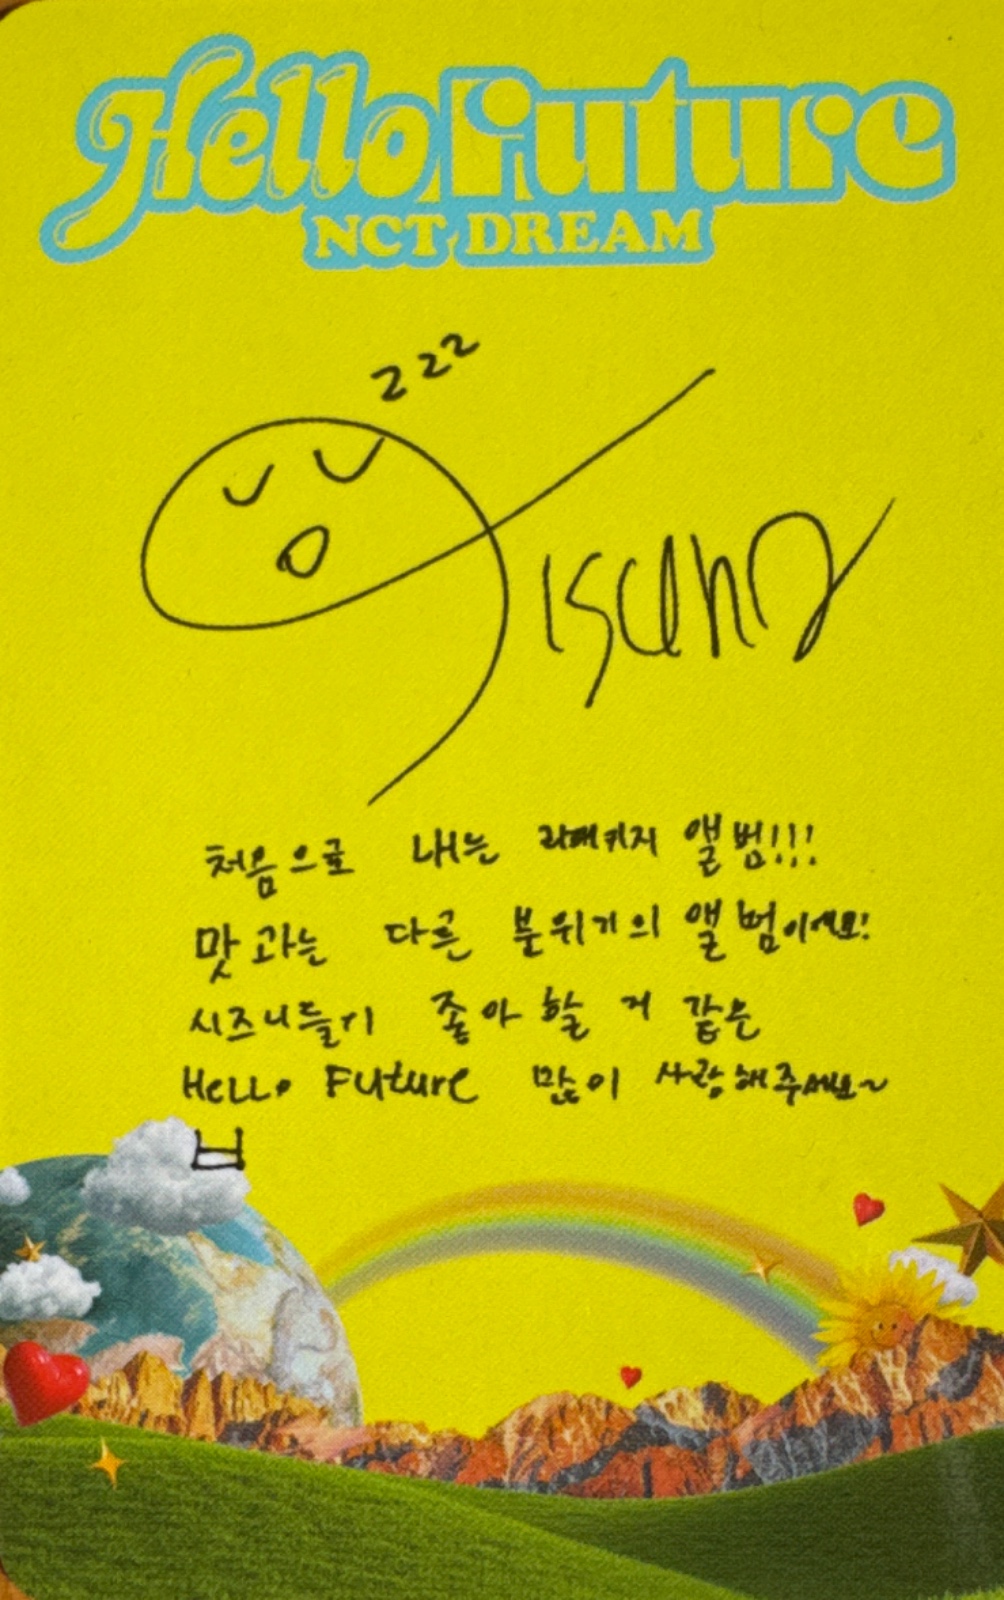 Hello Future
NCT DREAM
z z z
Jisung
처음으로 내는 리패키지 앨범!!!
맛과는 다른 분위기의 앨범이에요!
시즈니들이 좋아할 거 같은
HELLo Future 많이 사랑해주세요~